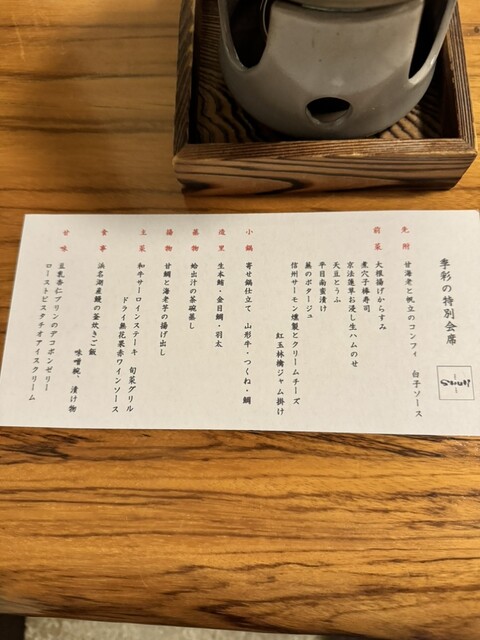 季彩の特別会席
先附 甘海老と帆立のコンフィ 白子ソース
前菜 大根揚げからすみ
煮穴子棒寿司
京法蓮草お浸し生ハムのせ
天豆とうふ
平目南蛮漬け
蕪のポタージュ
信州サーモン燻製とクリームチーズ
紅玉林檎ジャム掛け
小鍋 寄せ鍋仕立て 山形牛・つくね・鯛
造里 生本鮪・金目鯛・羽太
蒸物 蛤出汁の茶碗蒸し
揚物 甘鯛と海老芋の揚げ出し
主菜 和牛サーロインステーキ 旬菜グリル
ドライ無花果赤ワインソース
食事 浜名湖産鰻の釜炊きご飯
味噌椀、漬け物
甘味 豆乳杏仁プリンのデコポンゼリー
ローストピスタチオアイスクリーム